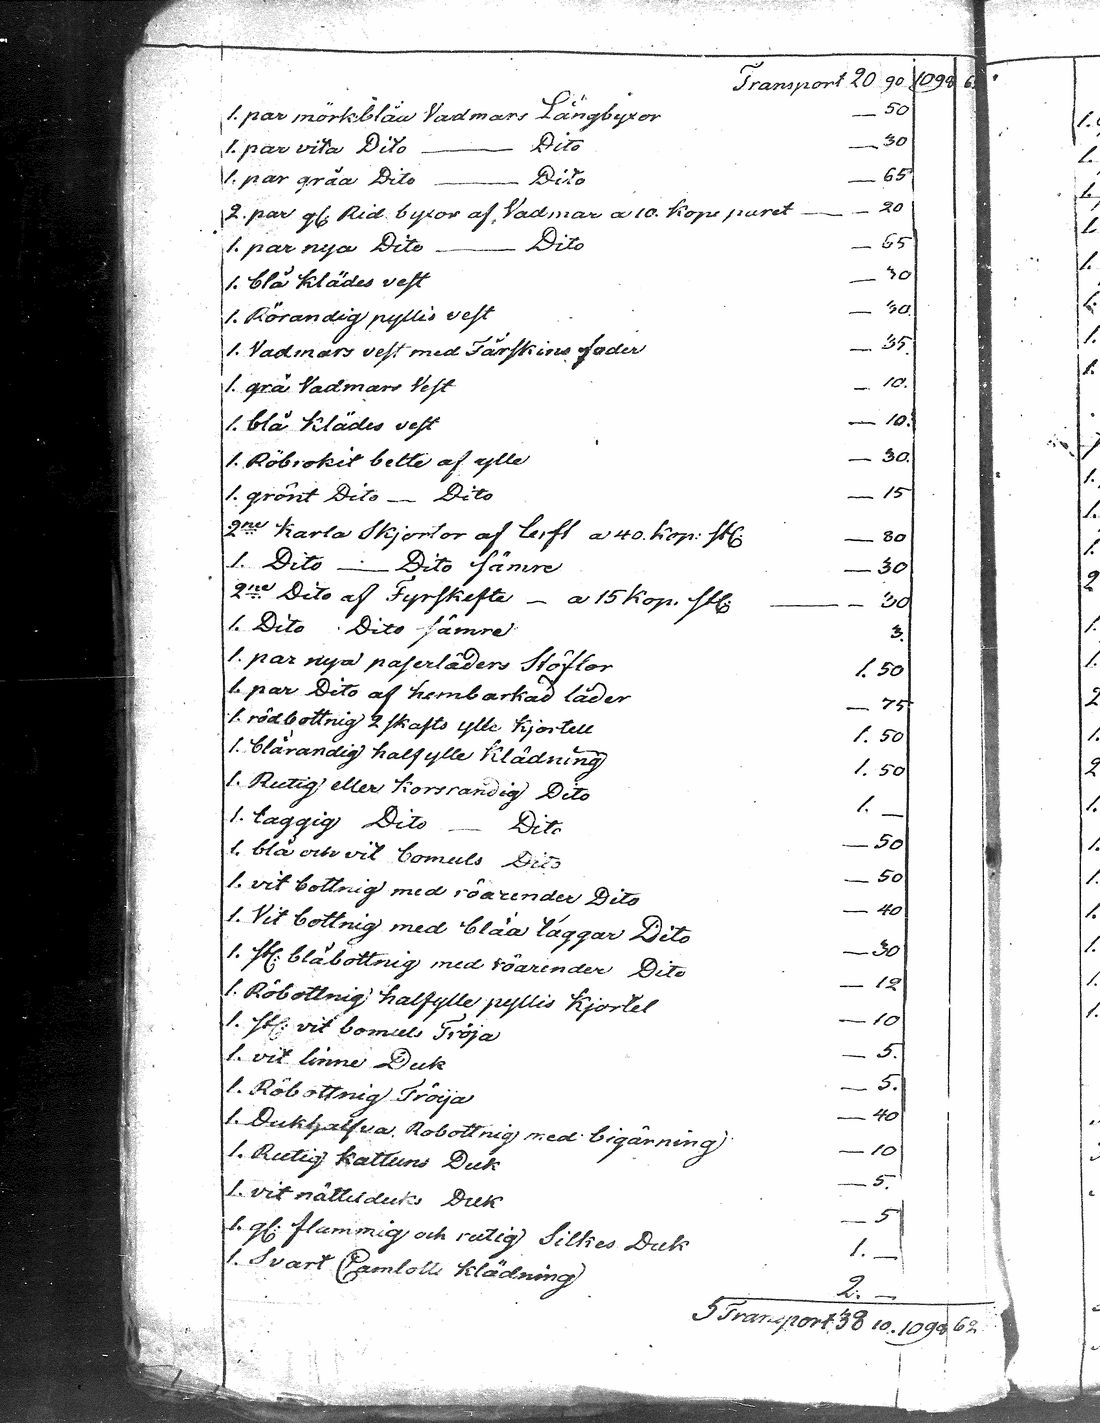 Transport 20 90 1098 62
1. par mörkblåa Vadmars Långbyxor — 50
1. par vita Dito — Dito — 30
1. par gråa Dito — Dito — 65
2. par gl. Rid byxor af Vadmar a 10. kop: paret — 20
1. par nya Dito — Dito — 65
1. blå klädes vest — 30
1. Rörandig pyllis vest — 30.
1. Vadmars vest med Fårskins foder — 35.
1. grå Vadmars Vest — 10.
1. blå Klädes vest — 10.
1. Röbrokit belte af ylle — 30.
1. grönt Dito — Dito — 15
2ne Karla Skjortor af lerft a 40. kop: st: — 80
1. Dito — Dito sämre — 30
2ne Dito af Fyrskefte — a 15 kop. st: — 30
1. Dito Dito sämre 3.
1. par nya paserläders Stöflor 1. 50
1. par Dito af hembarkad läder — 75
1. rödbottnig 2 skafts ylle Kjortell 1. 50
1. blårandig halfylle Klädning 1. 50
1. Rutig eller korsrandig Dito 1. —
1. taggig Dito — Dito — 50
1. blå och vit bomuls Dito — 50
1. vit bottnig med röarender Dito — 40
1. Vit bottnig med blåa taggar Dito — 30
1. st: blåbottnig med röarender Dito — 12
1. Röbottnig halfylle pyllis Kjortel — 10
1. st: vit bomuls Tröja — 5.
1. vit linne Duk — 5.
1. Röbottnig Tröija — 40
1. Dukhalfva. Robottnig med bigärning — 10
1. Rutig Kattuns Duk — 5.
1. vit nätteduks Duk — 5
1. gl: flammig och rutig Silkes Duk 1. —
1. Svart Camlolls klädning 2. —
Transport 38 10. 1098 62